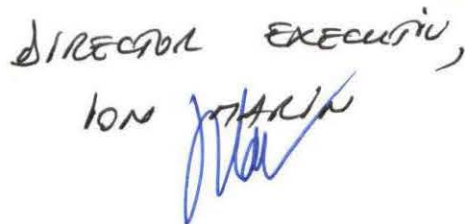 DIRECTOR EXECUTIV,
ION MARIN